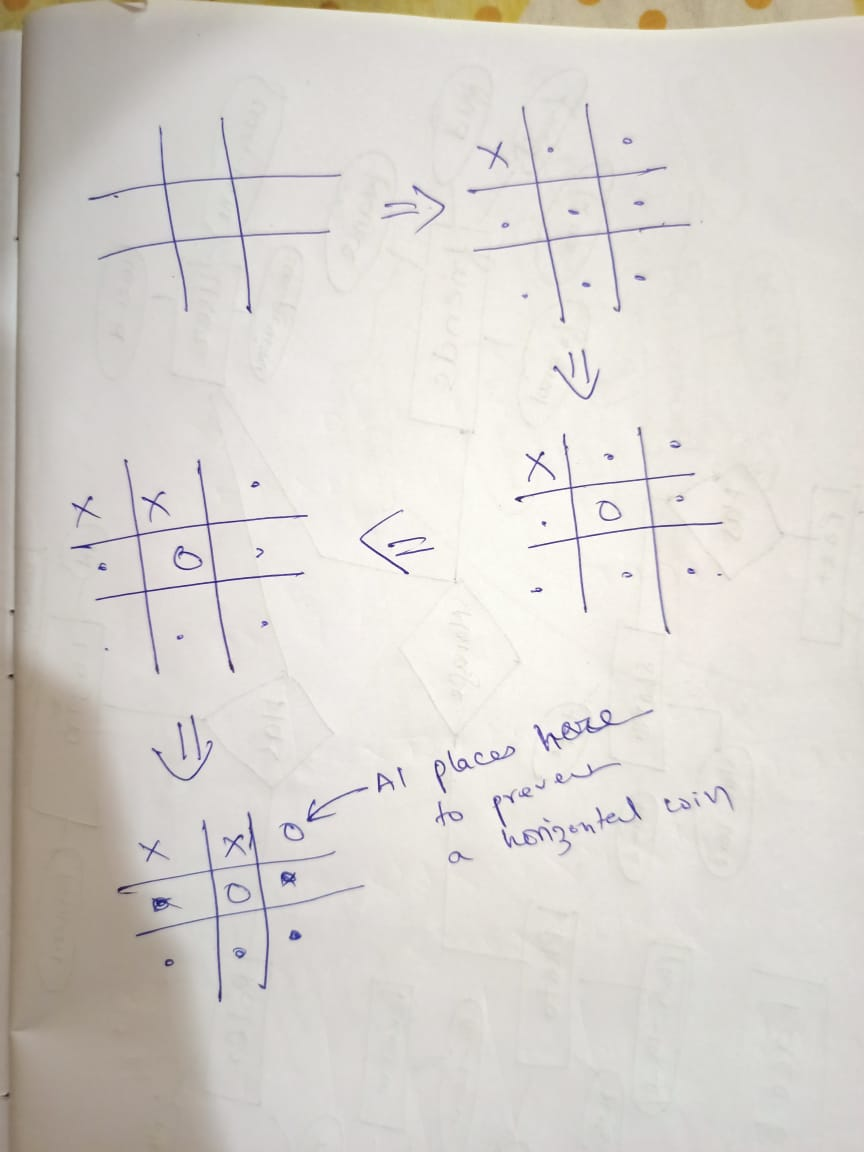 X
X
O
X X
O
AI places here
to prevent
a horizontal win
X X O
O